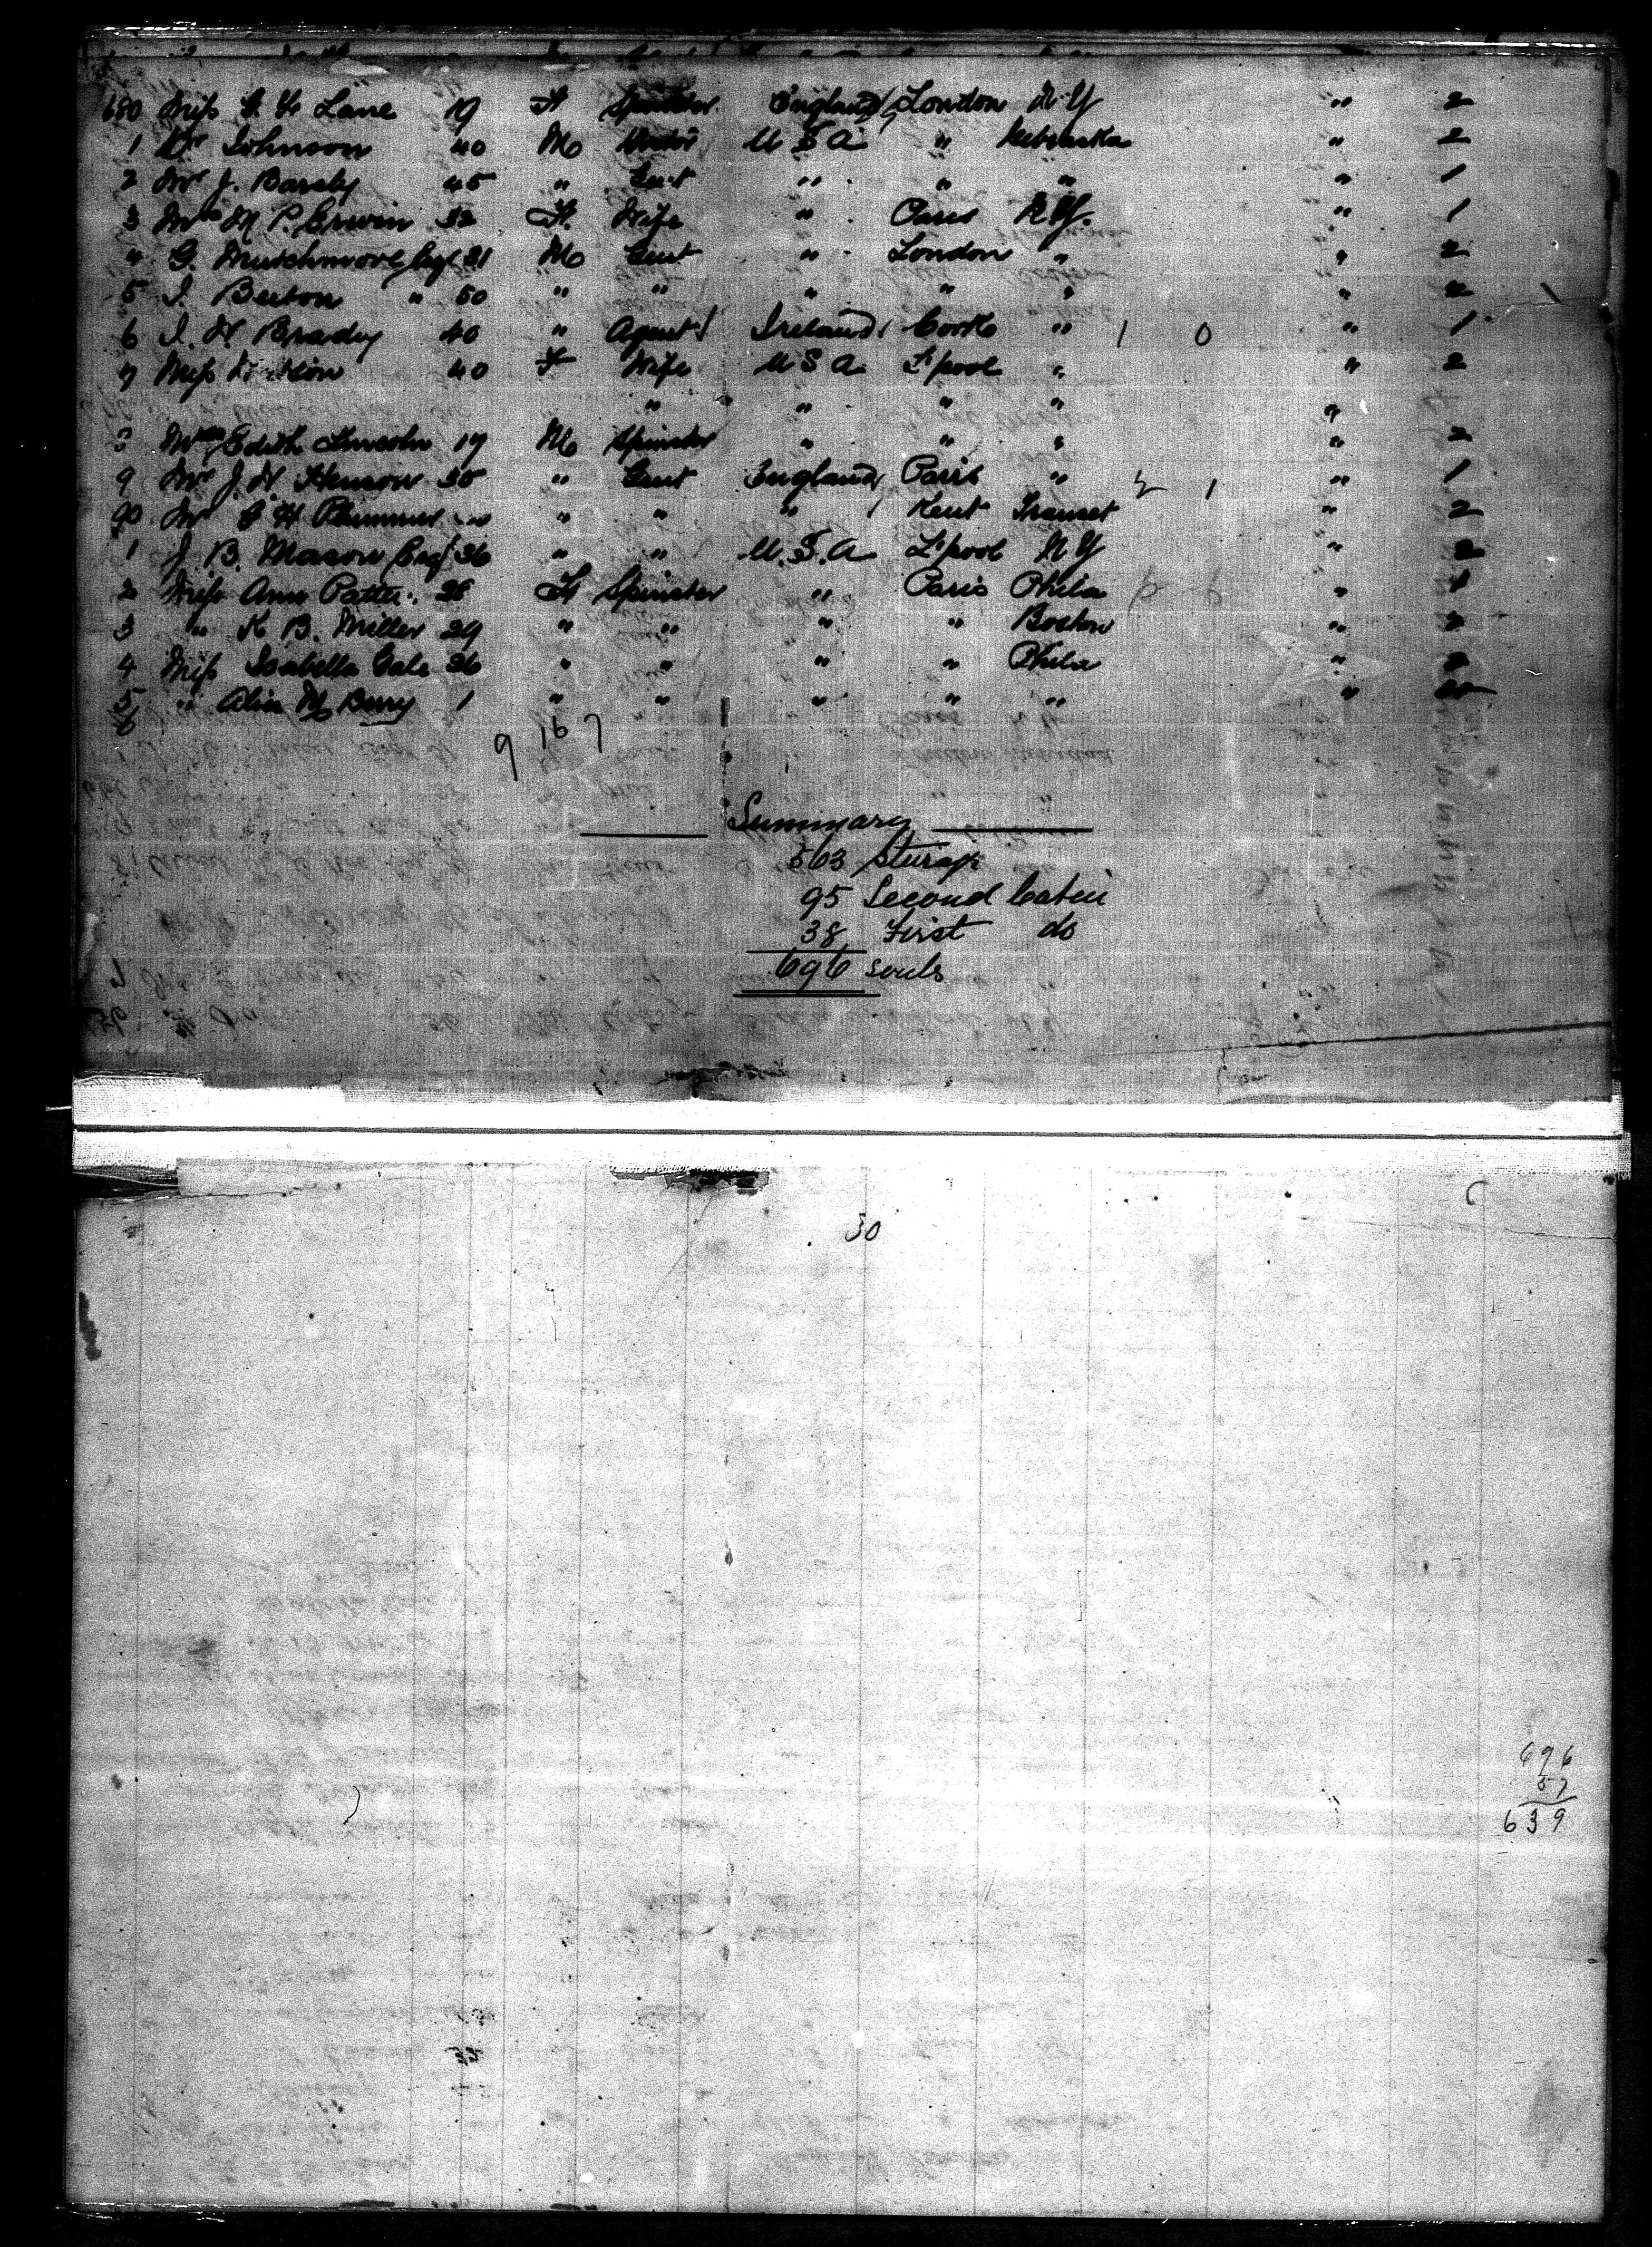 680 Miss G. H. Lane 19 F Spinster England London N Y " 2
1 Dr Johnson 40 M Doctor U S A " Nebraska " 2
2 Mr J. Barsly 45 " Gent " " " " 1
3 Mrs M P. Erwin 32 F. Wife " Paris N Y. " 1
4 G. Mutchmore Esq 31 M Gent " London " " 2
5 J. Beeton " 50 " " " " " " 2
6 J. H Brady 40 " Agent Ireland Cork " 1 0 " 1
7 Miss 40 F Wife U S A L'pool " " 2
" " " " "
Edith Lincoln 17 M Spinster " " " " 2
9 Mr J. H Henson 35 " Gent England Paris " 2 1 " 1
90 Mr G H " " " Kent Transet " 2
1 J. B. Mason Esq 36 " " U.S.A L'pool N Y " 2
2 Miss Ann 28 F Spinster " Paris Phila " 1
3 " K B. Miller 29 " " " " Boston " 2
4 Miss Isabella Gale 36 " " " " Phila " 2
5 " Alice M Berry 1 " " " " " "
6
9 16 7
Summary
563 Steerage
95 Second Cabin
38 First do
696 souls
30
696
57
639